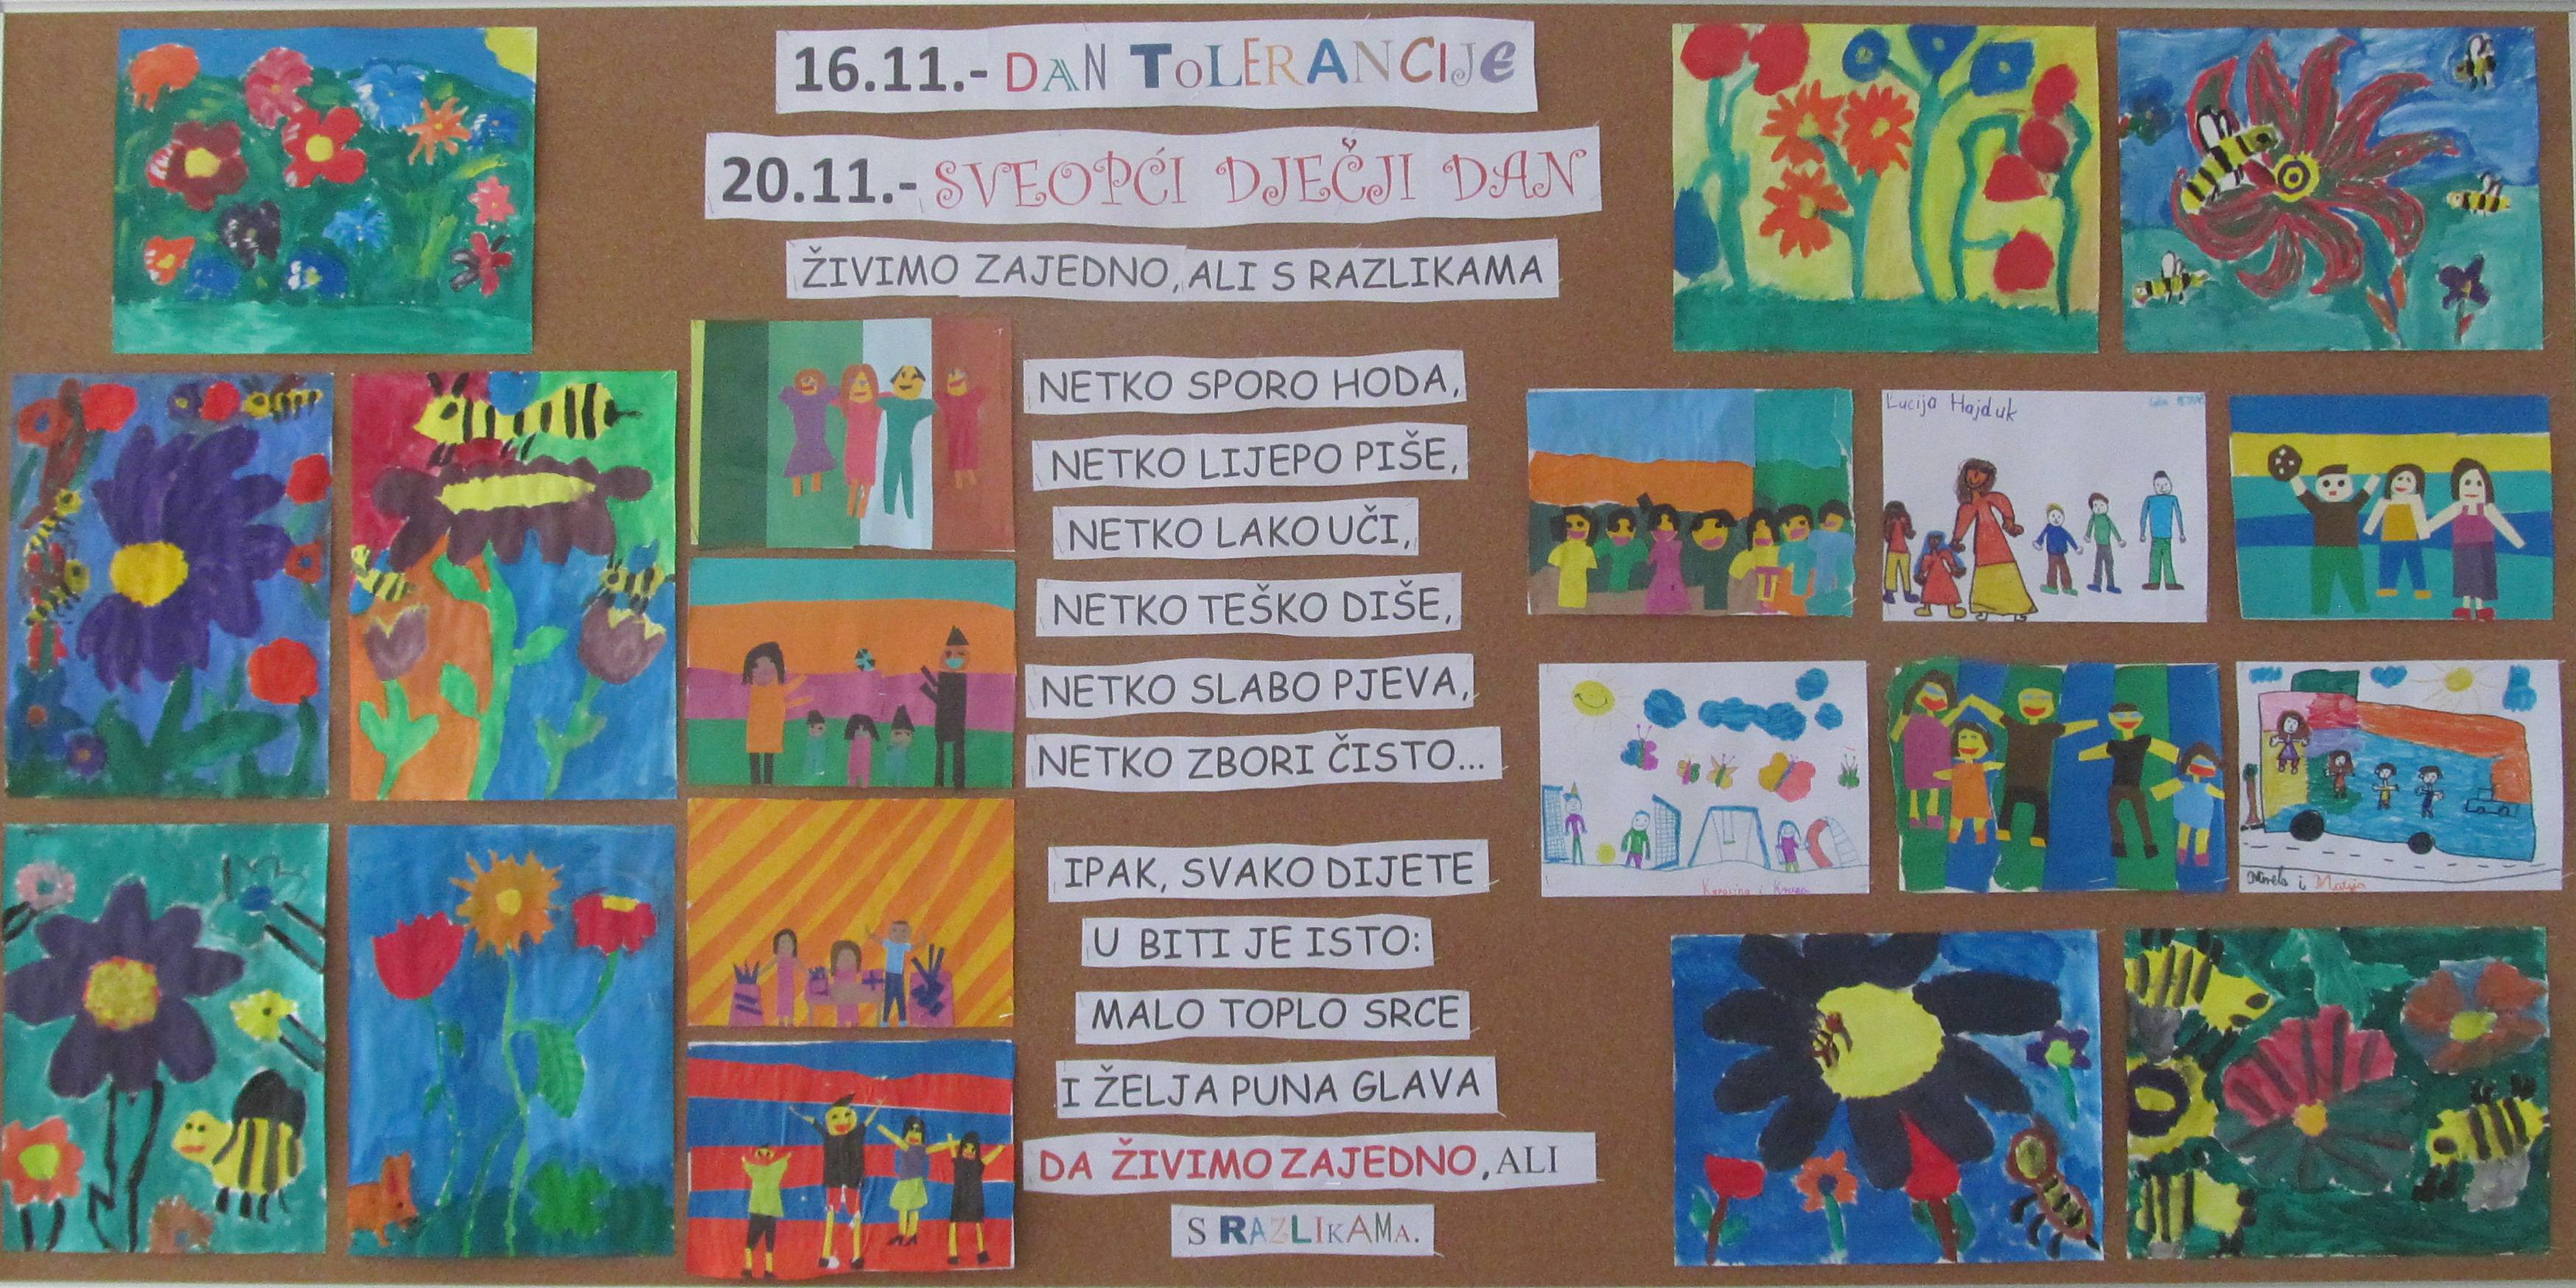 16.11.- DAN TOLERANCIJE
20.11.- SVEOPĆI DJEČJI DAN
ŽIVIMO ZAJEDNO, ALI S RAZLIKAMA
NETKO SPORO HODA,
NETKO LIJEPO PIŠE,
NETKO LAKO UČI,
NETKO TEŠKO DIŠE,
NETKO SLABO PJEVA,
NETKO ZBORI ČISTO...
IPAK, SVAKO DIJETE
U BITI JE ISTO:
MALO TOPLO SRCE
I ŽELJA PUNA GLAVA
DA ŽIVIMO ZAJEDNO, ALI
S RAZLIKAMA.
Lucija Hajduk
Karolina i
i Matija